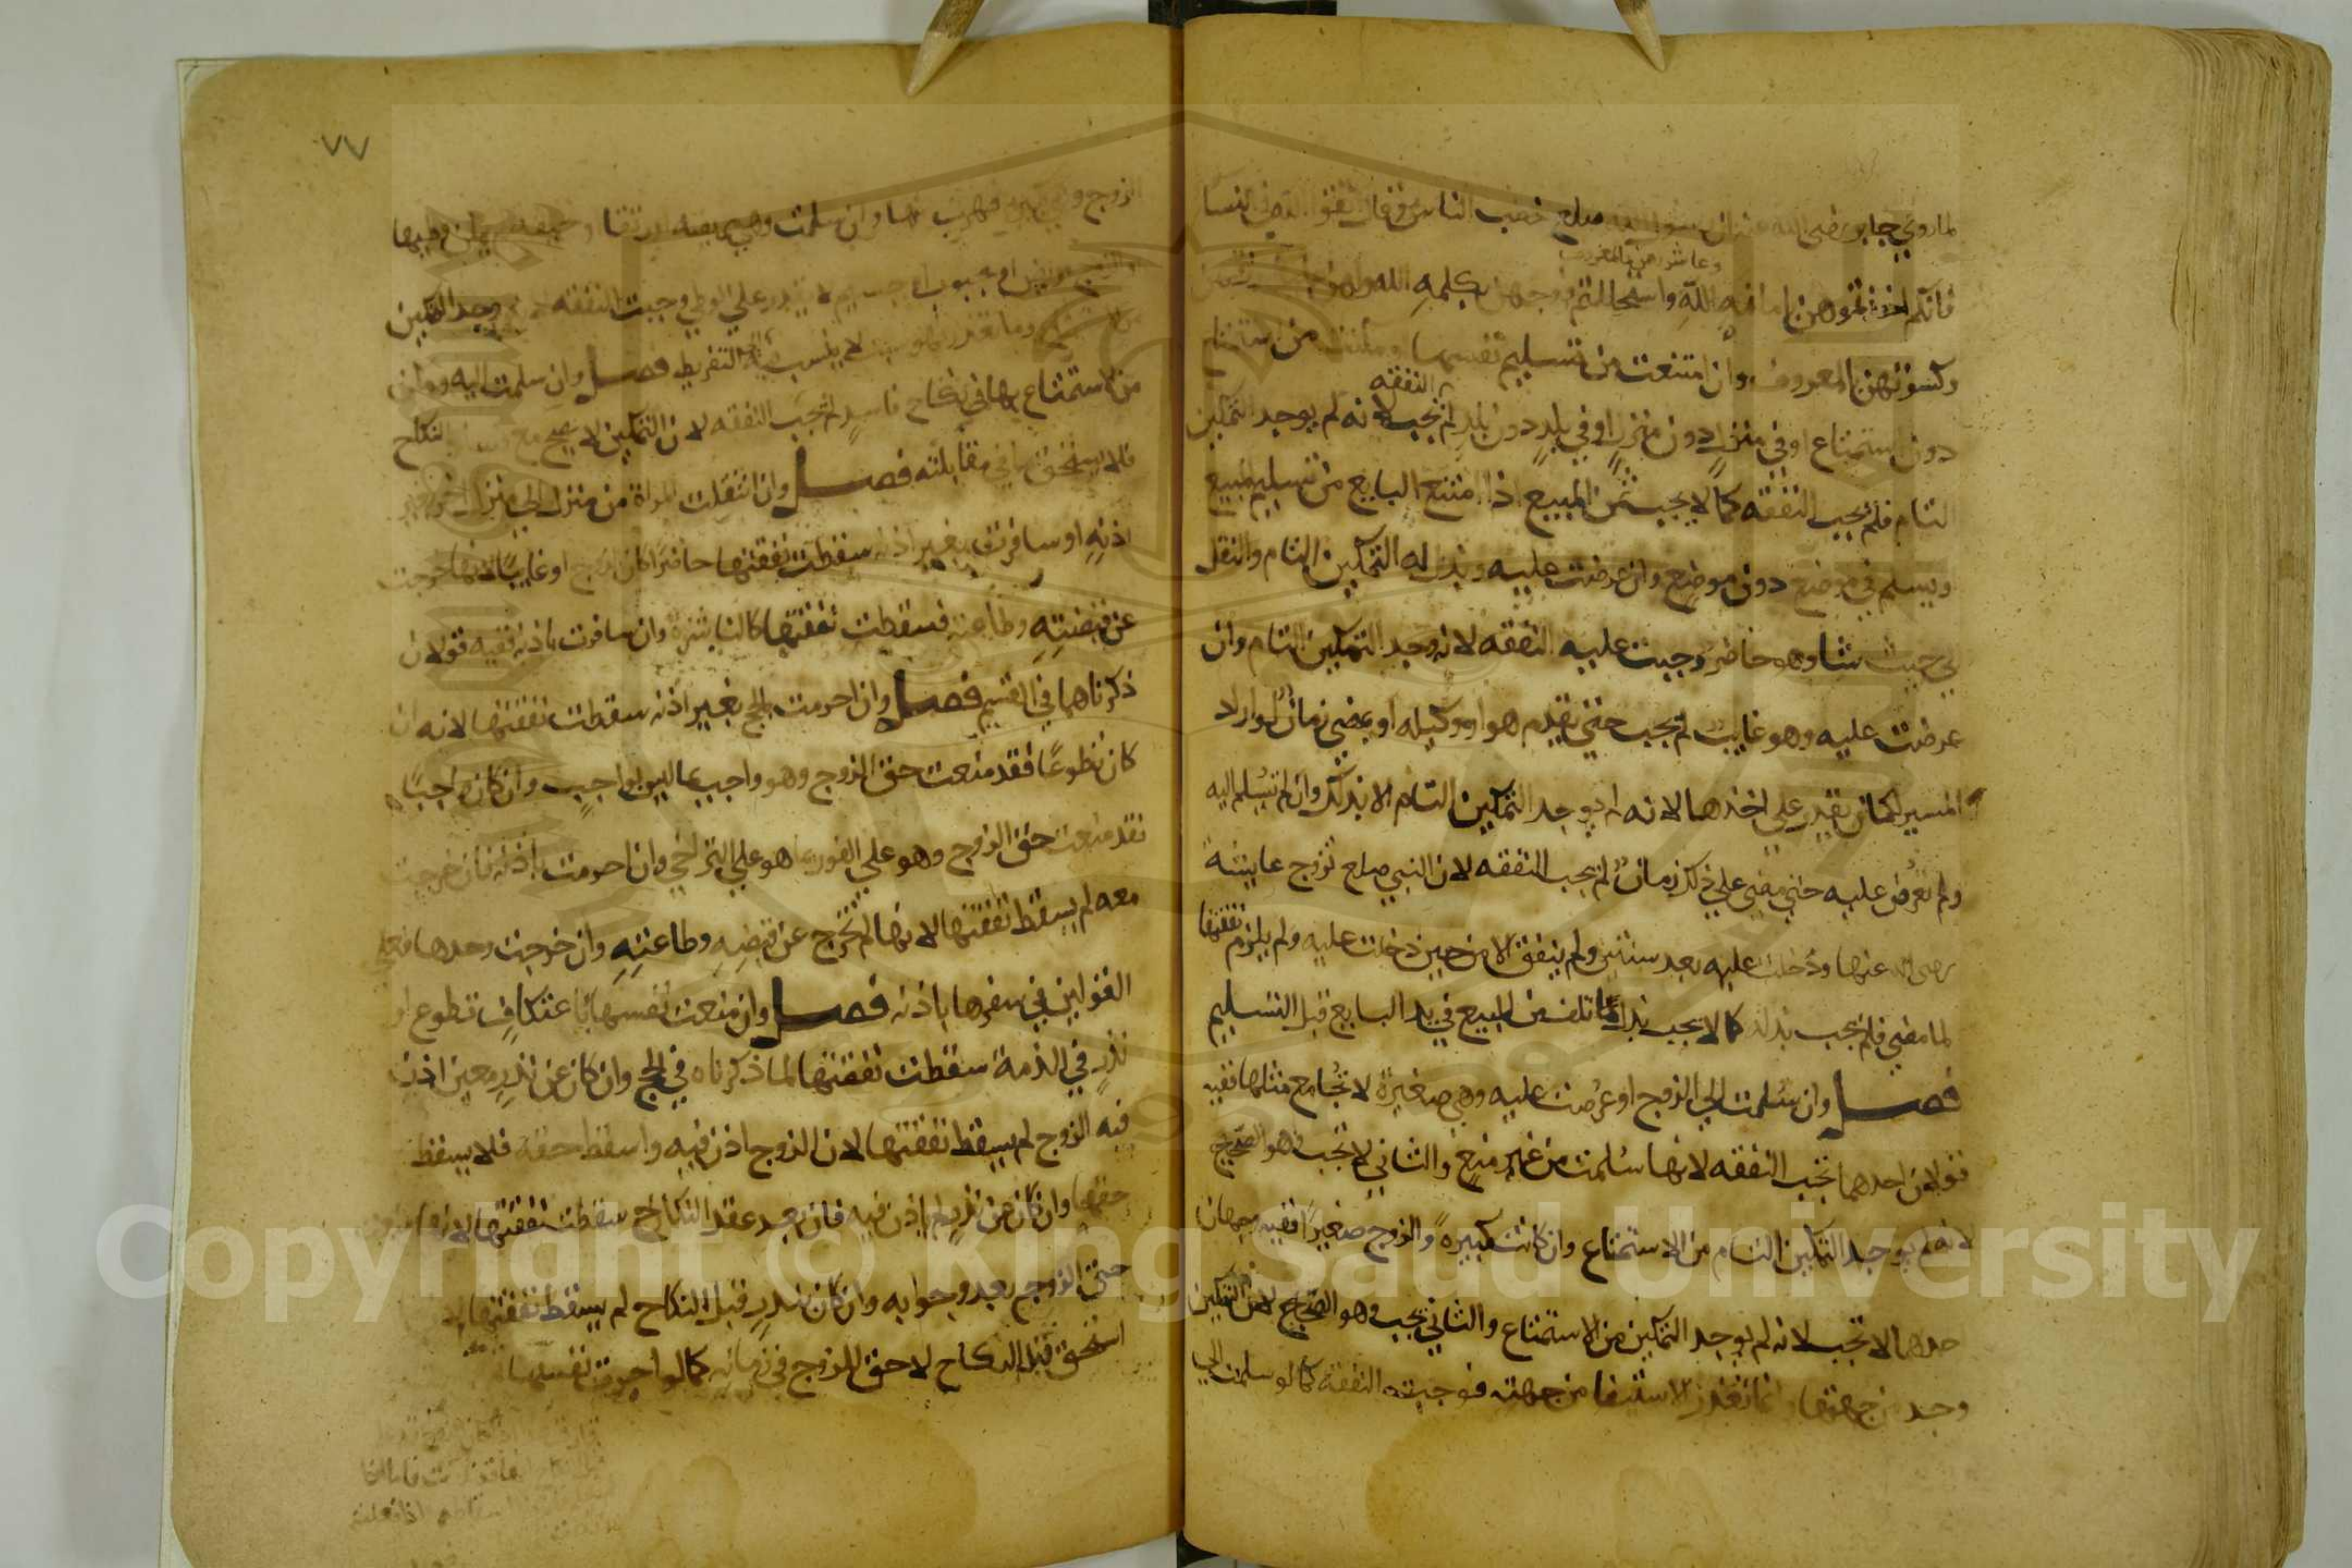 لما روي جابر رضي الله عنه ان رسول الله صلع خطب الناس فقال اتقوا الله في النسا
وعاشروهن بالمعروف
فانكم اخذتموهن بامانة الله واستحللتم فروجهن بكلمه الله ولهن عليكم رزقهن
وكسوتهن بالمعروف وان امتنعت من تسليم نفسها او مكنت من استمتاع
دون استمتاع او في منزل دون منزل او في بلد دون بلد لم تجب النفقه لانه لم يوجد التمكين
التام فلم تجب النفقه كما لا يجب ثمن المبيع اذا امتنع البايع من تسليم المبيع
ويسلم في موضع دون موضع وان عرضت عليه وبذل له التمكين التام والنقل
الي حيث شا وهو حاضر وجبت عليه النفقه لانه وجد التمكين التام وان
عرضت عليه وهو غايب لم يجب حتي يقدم هو او وكيله او يمضي زمان لو اراد
المسير لكان يقدر علي اخذها لانه لم يوجد التمكين التام الا بذلك وان لم تسلم اليه
ولم تعرض عليه حتي مضي علي ذلك زمان لم يجب النفقه لان النبي صلع تزوج عايشة
رضي الله عنها ودخلت عليه بعد سنتين ولم ينفق الا من حين دخلت عليه ولم يلتزم نفقتها
لما مضي فلم يجب بدله كما لا يجب بدل ما تلف من المبيع في يد البايع قبل التسليم
فصل وان سلمت الي الزوج او عرضت عليه وهي صغيرة لا تجامع مثلها ففيه
قولان احدهما تجب النفقه لانها سلمت من غير منع والثاني لا تجب وهو الصحيح
لانه لم يوجد التمكين التام من الاستمتاع وان كانت كبيرة والزوج صغيرا ففيه وجهان
احدهما لا تجب لانه لم يوجد التمكين من الاستمتاع والثاني يجب وهو الصحيح لان التمكين
وجد من جهتها وانما تعذر الاستيفا من جهته فوجبت النفقة كما لو سلمت الي
٧٧
الزوج وهو كبير فهرب منها وان سلمت وهي مريضه او رتقا او نحيفه
او الزوج مريض او مجبوب او حسيم لا يقدر علي الوطي وجبت النفقه لانه وجد التمكين
من الاستمتاع وما تعذر فهو سبب لا ينسب فيه الي التفريط فصل وان سلمت اليه ومكن
من الاستمتاع بها في نكاح فاسد لم تجب النفقه لان التمكين لا يصح مع فساد النكاح
فلا يستحق ما في مقابلته فصل وان انتقلت المراة من منزل الي منزل اخر بغير
اذنه او سافرت بغير اذنه سقطت نفقتها حاضرا كان الزوج او غايبا لانها خرجت
عن قبضته وطاعته فسقطت نفقتها كالناشزة وان سافرت باذنه ففيه قولان
ذكرناهما في القسم فصل وان احرمت بالحج بغير اذنه سقطت نفقتها لانه ان
كان تطوعا فقد منعت حق الزوج وهو واجب بما ليس بواجب وان كان واجبا
فقد منعت حق الزوج وهو علي الفور بما هو علي التراخي وان احرمت باذنه فان خرجت
معه لم يسقط نفقتها لانها لم تخرج عن قبضه وطاعته وان خرجت وحدها فعلي
القولين في سفرها باذنه فصل وان منعت نفسها باعتكاف تطوع او
نذر في الذمة سقطت نفقتها لما ذكرناه في الحج وان كان عن نذر معين اذن
فيه الزوج لم يسقط نفقتها لان الزوج اذن فيه واسقط حقه فلا يسقط
حقها وان كان عن نذر لم ياذن فيه فان بعد عقد النكاح سقطت نفقتها لانها منعت
حق الزوج بعد وجوبه وان كان بنذر قبل النكاح لم يسقط نفقتها لان
استحق قبل النكاح لا حق للزوج في زمانه كما لو اجرت نفسها
Copyright © King Saud University